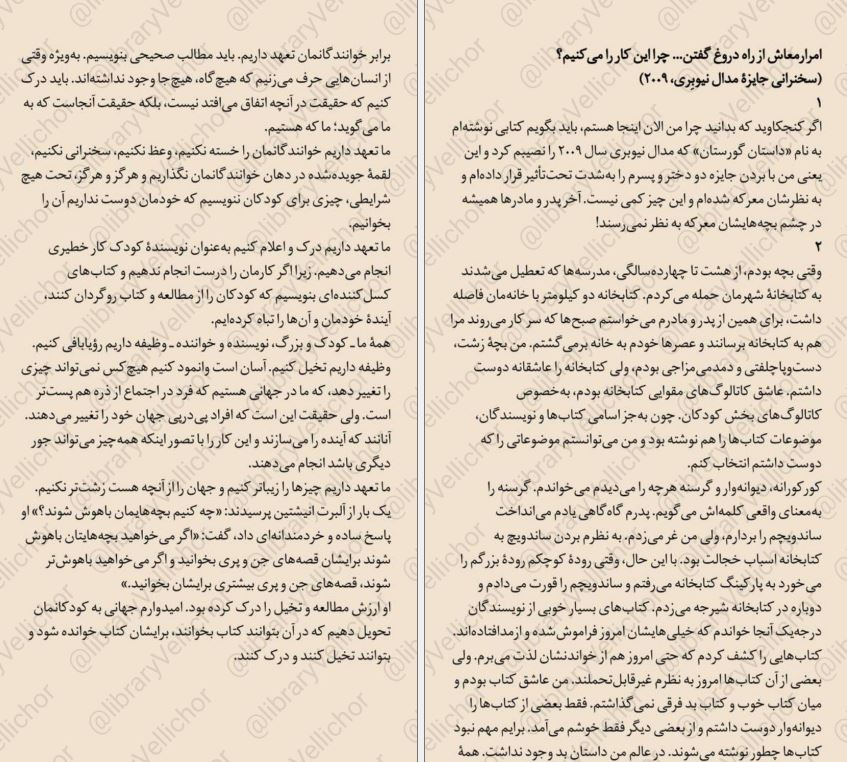 امرارمعاش از راه دروغ گفتن... چرا این کار را می‌کنیم؟
(سخنرانی جایزهٔ مدال نیوبِری، ۲۰۰۹)
۱
اگر کنجکاوید که بدانید چرا من الان اینجا هستم، باید بگویم کتابی نوشته‌ام
به نام «داستان گورستان» که مدال نیوبری سال ۲۰۰۹ را نصیبم کرد و این
یعنی من با بردن جایزه دو دختر و پسرم را به‌شدت تحت‌تأثیر قرار داده‌ام و
به نظرشان معرکه شده‌ام و این چیز کمی نیست. آخر پدر و مادرها همیشه
در چشم بچه‌هایشان معرکه به نظر نمی‌رسند!
۲
وقتی بچه بودم، از هشت تا چهارده‌سالگی، مدرسه‌ها که تعطیل می‌شدند
به کتابخانهٔ شهرمان حمله می‌کردم. کتابخانه دو کیلومتر با خانه‌مان فاصله
داشت، برای همین از پدر و مادرم می‌خواستم صبح‌ها که سر کار می‌روند مرا
هم به کتابخانه برسانند و عصرها خودم به خانه برمی‌گشتم. من بچهٔ زشت،
دست‌وپاچلفتی و دمدمی‌مزاجی بودم، ولی کتابخانه را عاشقانه دوست
داشتم. عاشق کاتالوگ‌های مقوایی کتابخانه بودم، به‌خصوص
کاتالوگ‌های بخش کودکان. چون به‌جز اسامی کتاب‌ها و نویسندگان،
موضوعات کتاب‌ها را هم نوشته بود و من می‌توانستم موضوعاتی را که
دوست داشتم انتخاب کنم.
کورکورانه، دیوانه‌وار و گرسنه هرچه را می‌دیدم می‌خواندم. گرسنه را
به‌معنای واقعی کلمه‌اش می‌گویم. پدرم گاه‌گاهی یادم می‌انداخت
ساندویچم را بردارم، ولی من غر می‌زدم. به نظرم بردن ساندویچ به
کتابخانه اسباب خجالت بود. با این حال، وقتی رودهٔ کوچکم رودهٔ بزرگم را
می‌خورد به پارکینگ کتابخانه می‌رفتم و ساندویچم را قورت می‌دادم و
دوباره در کتابخانه شیرجه می‌زدم. کتاب‌های بسیار خوبی از نویسندگان
درجه‌یک آنجا خواندم که خیلی‌هایشان امروز فراموش‌شده و ازمدافتاده‌اند.
کتاب‌هایی را کشف کردم که حتی امروز هم از خواندنشان لذت می‌برم. ولی
بعضی از آن کتاب‌ها امروز به نظرم غیرقابل‌تحملند. من عاشق کتاب بودم و
میان کتاب خوب و کتاب بد فرقی نمی‌گذاشتم. فقط بعضی از کتاب‌ها را
دیوانه‌وار دوست داشتم و از بعضی دیگر فقط خوشم می‌آمد. برایم مهم نبود
کتاب‌ها چطور نوشته می‌شوند. در عالم من داستان بد وجود نداشت. همهٔ
برابر خوانندگانمان تعهد داریم. باید مطالب صحیحی بنویسیم. به‌ویژه وقتی
از انسان‌هایی حرف می‌زنیم که هیچ‌گاه، هیچ‌جا وجود نداشته‌اند. باید درک
کنیم که حقیقت در آنچه اتفاق می‌افتد نیست، بلکه حقیقت آنجاست که به
ما می‌گوید؛ ما که هستیم.
ما تعهد داریم خوانندگانمان را خسته نکنیم، وعظ نکنیم، سخنرانی نکنیم،
لقمهٔ جویده‌شده در دهان خوانندگانمان نگذاریم و هرگز و هرگز، تحت هیچ
شرایطی، چیزی برای کودکان ننویسیم که خودمان دوست نداریم آن را
بخوانیم.
ما تعهد داریم درک و اعلام کنیم به‌عنوان نویسندهٔ کودک کار خطیری
انجام می‌دهیم. زیرا اگر کارمان را درست انجام ندهیم و کتاب‌های
کسل‌کننده‌ای بنویسیم که کودکان را از مطالعه و کتاب روگردان کنند،
آیندهٔ خودمان و آن‌ها را تباه کرده‌ایم.
همهٔ ما ـ کودک و بزرگ، نویسنده و خواننده ـ وظیفه داریم رؤیابافی کنیم.
وظیفه داریم تخیل کنیم. آسان است وانمود کنیم هیچ‌کس نمی‌تواند چیزی
را تغییر دهد، که ما در جهانی هستیم که فرد در اجتماع از ذره هم پست‌تر
است. ولی حقیقت این است که افراد پی‌درپی جهان خود را تغییر می‌دهند.
آنانند که آینده را می‌سازند و این کار را با تصور اینکه همه‌چیز می‌تواند جور
دیگری باشد انجام می‌دهند.
ما تعهد داریم چیزها را زیباتر کنیم و جهان را از آنچه هست زشت‌تر نکنیم.
یک بار از آلبرت انیشتین پرسیدند: «چه کنیم بچه‌هایمان باهوش شوند؟» او
پاسخ ساده و خردمندانه‌ای داد، گفت: «اگر می‌خواهید بچه‌هایتان باهوش
شوند برایشان قصه‌های جن و پری بخوانید و اگر می‌خواهید باهوش‌تر
شوند، قصه‌های جن و پری بیشتری برایشان بخوانید.»
او ارزش مطالعه و تخیل را درک کرده بود. امیدوارم جهانی به کودکانمان
تحویل دهیم که در آن بتوانند کتاب بخوانند، برایشان کتاب خوانده شود و
بتوانند تخیل کنند و درک کنند.
@libraryVellichor